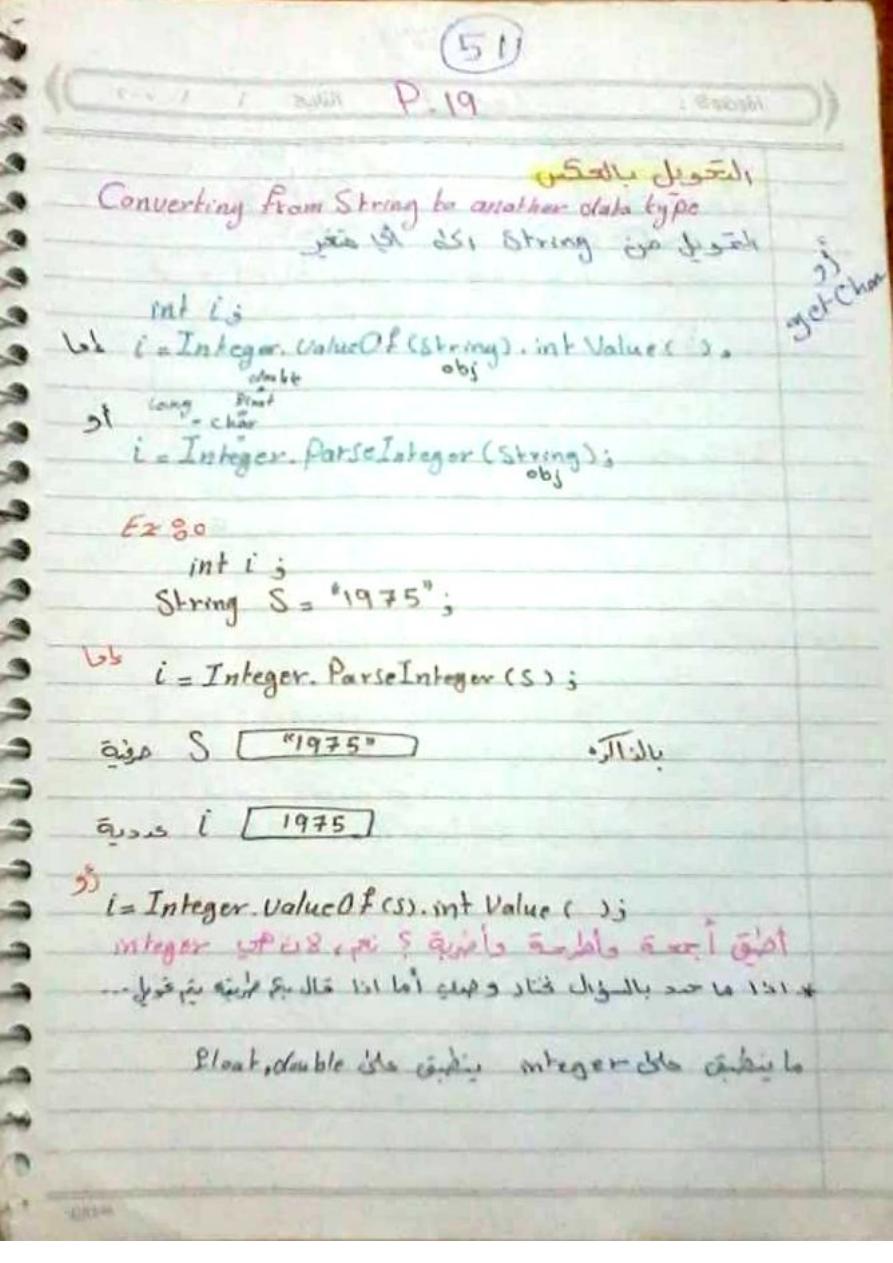 51
P.19
التحويل بالعكس
Converting from String to another data type
التحويل من String الى أي متغير
أو
getChar
int i;
اما i = Integer.valueOf(String).intValue( ).
obj
double
long float
أو - char
i = Integer.ParseInteger(String);
obj
Ex:
int i;
String S = "1975";
اما
i = Integer.ParseInteger(S);
حرفية S "1975" بالذاكره
عددية i 1975
أو
i = Integer.valueOf(s).int Value ( );
أجمعة وأطرحة وأضربة ؟ نعم، لان integer
* اذا ما حدد بالسؤال نختار وحده أما اذا قال بكم طريقه يتم تحويل...
ما ينطبق على integer ينطبق على float, double